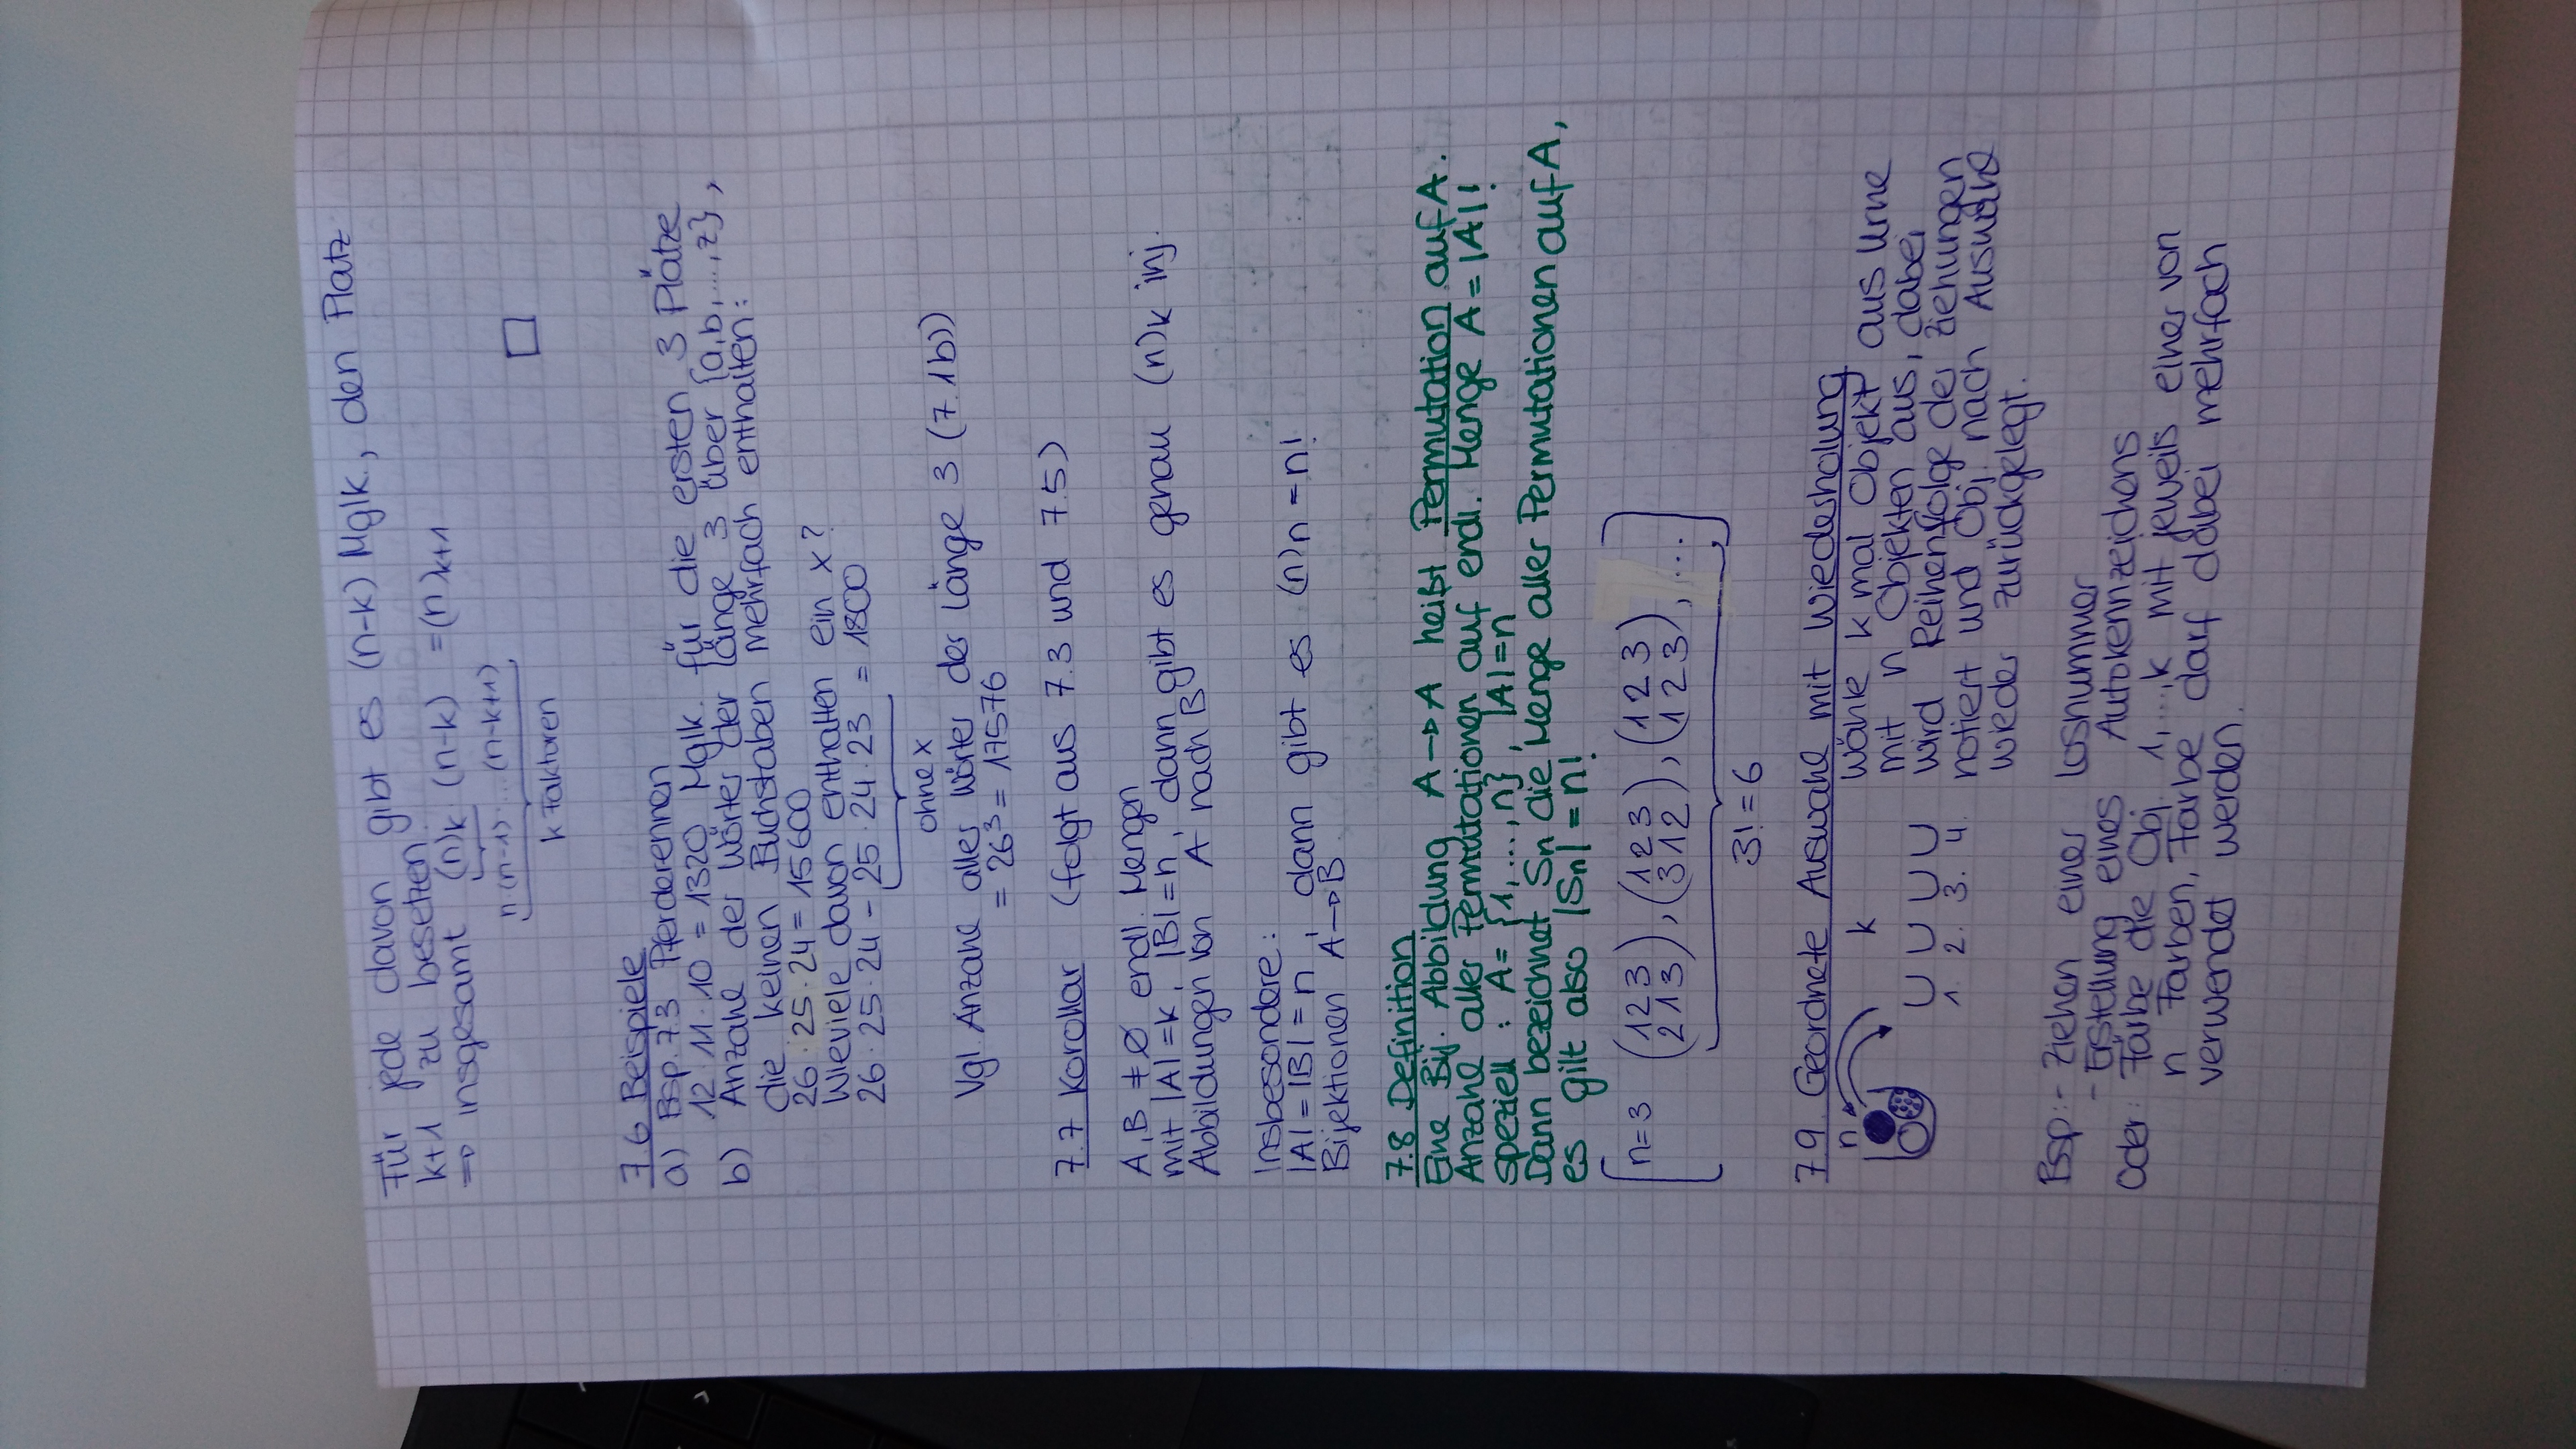 Für jede davon gibt es (n-k) Mglk., den Platz
k+1 zu besetzen.
⇒ insgesamt (n)k · (n-k) = (n)k+1
n·(n-1)·...·(n-k+1)
k Faktoren
□
7.6 Beispiele
a) Bsp. 7.3 Pferderennen
12·11·10 = 1320 Mglk. für die ersten 3 Plätze
b) Anzahl der Wörter der Länge 3 über {a,b,...,z},
die keinen Buchstaben mehrfach enthalten:
26·25·24 = 15600
Wieviele davon enthalten ein x?
26·25·24 - 25·24·23 = 1800
ohne x
Vgl. Anzahl aller Wörter der Länge 3 (7.1b))
= 26³ = 17576
7.7 Korollar (folgt aus 7.3 und 7.5)
A,B ≠ ∅ endl. Mengen
mit |A|=k, |B|=n, dann gibt es genau (n)k inj.
Abbildungen von A nach B
Insbesondere:
|A|=|B|=n, dann gibt es (n)n = n!
Bijektionen A→B
7.8 Definition
Eine Bij. Abbildung A→A heißt Permutation auf A.
Anzahl aller Permutationen auf endl. Menge A = |A|!
speziell: A= {1,...,n}, |A|=n
Dann bezeichnet Sn die Menge aller Permutationen auf A,
es gilt also |Sn| = n!
[n=3 (1 2 3), (1 2 3), (1 2 3)
(2 1 3), (3 1 2), (1 2 3), ...]
3! = 6
7.9 Geordnete Auswahl mit Wiederholung
n k Wähle k mal Objekt aus Urne
mit n Objekten aus, dabei
wird Reihenfolge der Ziehungen
1. 2. 3. 4. notiert und Obj. nach Auswahl
wieder zurückgelegt.
Bsp: - Ziehen einer Losnummer
- Erstellung eines Autokennzeichens
Oder: Färbe die Obj. 1,...,k mit jeweils einer von
n Farben, Farbe darf dabei mehrfach
verwendet werden.